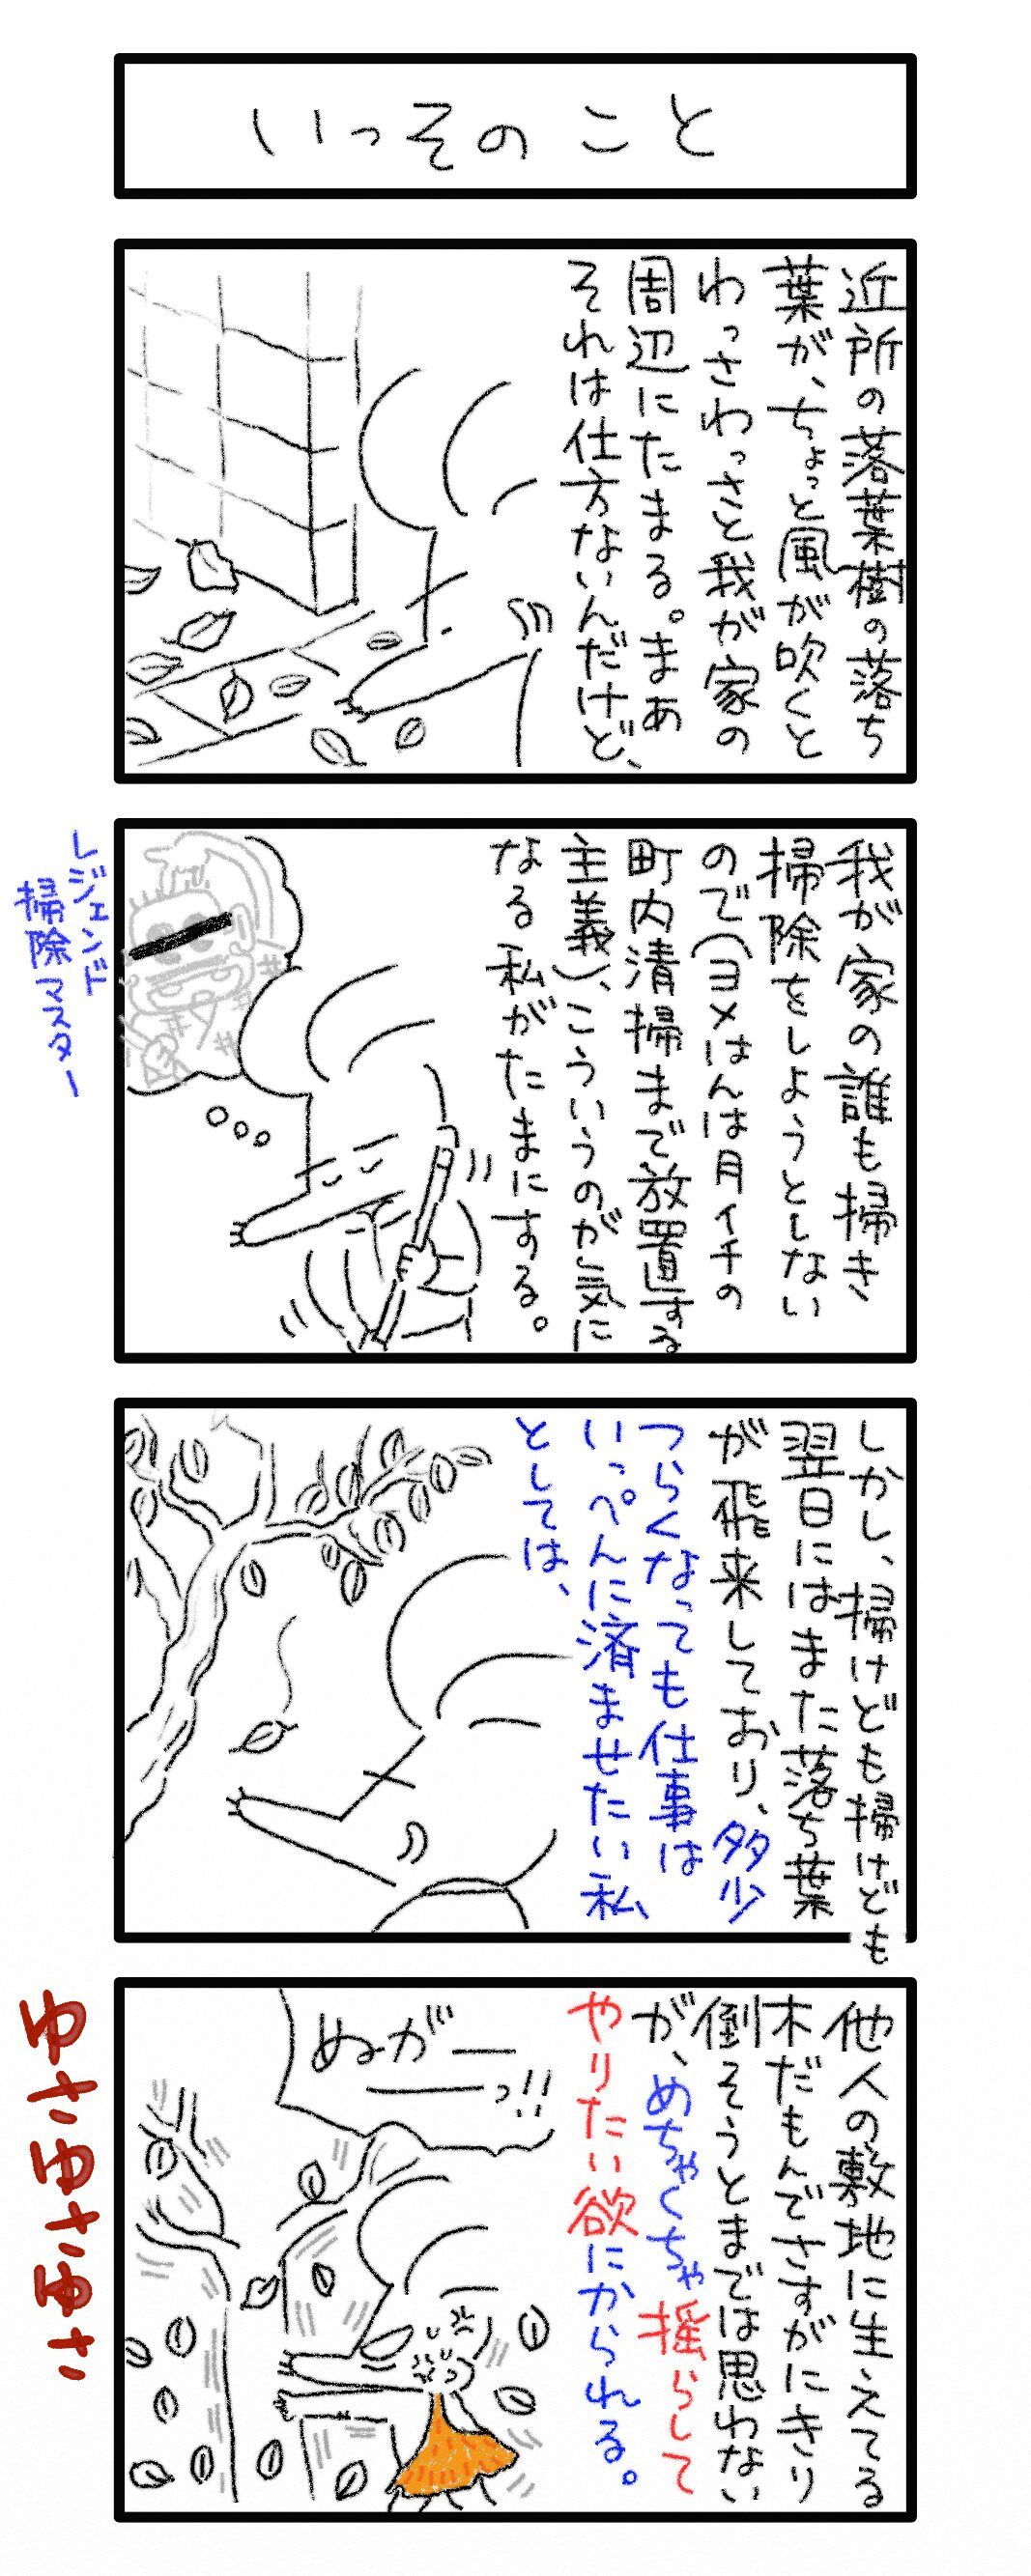 いっそのこと
近所の落葉樹の落ち
葉が、ちょっと風が吹くと
わっさわっさと我が家の
周辺にたまる。まあ
それは仕方ないんだけど、
我が家の誰も掃き
掃除をしようとしない
ので(ヨメはんは月イチの
町内清掃まで放置する
主義)、こういうのが気に
なる私がたまにする。
レジェンド
掃除マスター
しかし、掃けども掃けども
翌日にはまた落ち葉
が飛来しており、多少
つらくなっても仕事は
いっぺんに済ませたい私
としては、
他人の敷地に生えてる
木だもんでさすがにきり
倒そうとまでは思わない
が、めちゃくちゃ揺らして
やりたい欲にかられる。
ぬがーーっ!!
ゆさゆさゆさ